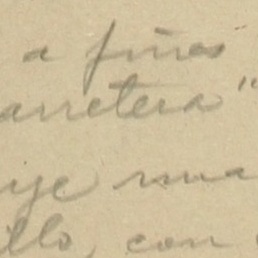 a fines
arretera"
uye una
illo, con